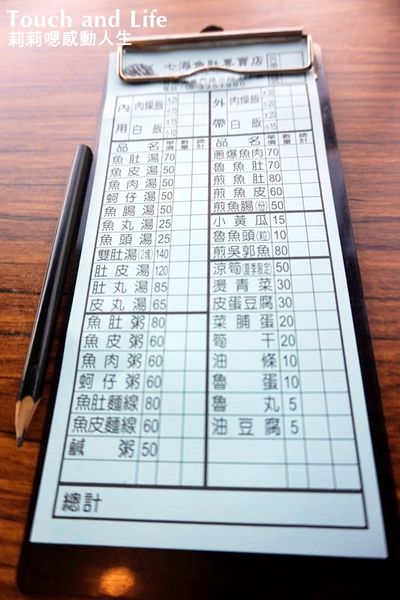 Touch and Life
莉莉嗯感動人生
七海魚肚專賣店
內用 肉燥飯 白飯
外帶 肉燥飯 白飯
品名 單價 數量 總計 品名 單價 數量 總計
魚肚湯 70 蔥爆魚肉 70
魚皮湯 50 魯魚肚 80
魚肉湯 50 煎魚肚 80
蚵仔湯 50 煎魚皮 60
魚腸湯 50 煎魚腸(份) 50
魚丸湯 25 小黃瓜 15
魚頭湯 25 魯魚頭(粒) 10
雙肚湯(2塊) 140 煎吳郭魚 80
肚皮湯 120 涼筍(夏季限定) 50
肚丸湯 85 燙青菜 30
皮丸湯 65 皮蛋豆腐 30
魚肚粥 80 菜脯蛋 20
魚皮粥 60 筍干 20
魚肉粥 60 油條 10
蚵仔粥 60 魯蛋 10
魚肚麵線 80 魯丸 5
魚皮麵線 60 油豆腐 5
鹹粥 50
總計